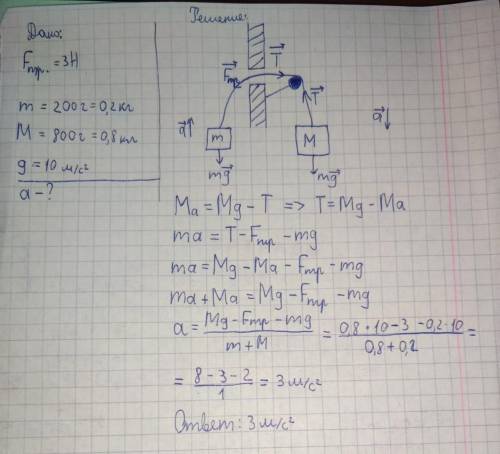 Дано:
Fтр. = 3Н
m = 200г = 0,2кг
M = 800г = 0,8кг
g = 10 м/с²
a - ?
Решение:
T⃗
Fтр
T⃗
a⃗↑
m
M
a⃗↓
mg⃗
mg⃗
Ma = Mg - T => T = Mg - Ma
ma = T - Fтр - mg
ma = Mg - Ma - Fтр - mg
ma + Ma = Mg - Fтр - mg
a = (Mg - Fтр - mg)/(m + M) = (0,8 • 10 - 3 - 0,2 • 10)/(0,8 + 0,2) =
= (8 - 3 - 2)/1 = 3 м/с²
Ответ: 3 м/с²